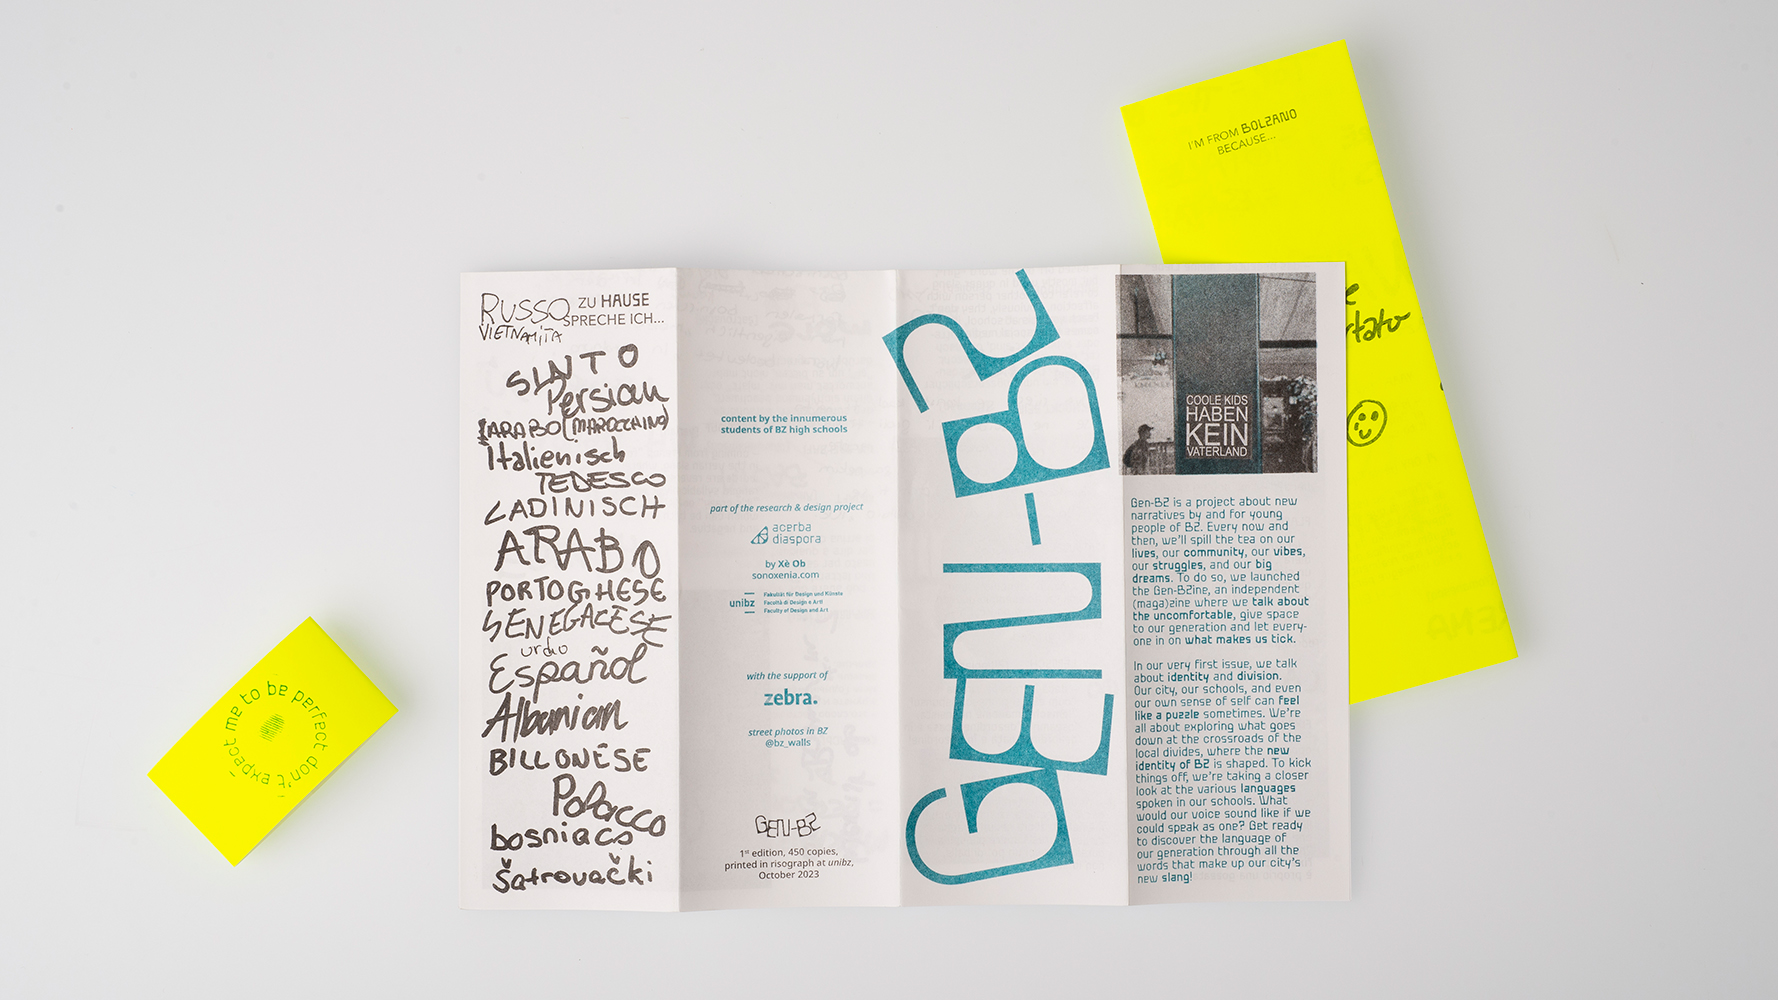 RUSSO
VIETNAMITA
ZU HAUSE
SPRECHE ICH...
SINTO
Persian
ARABO (MAROCCHINO)
Italienisch
TEDESCO
LADINISCH
ARABO
PORTOGHESE
SENEGALESE
urdu
Español
Albanian
BILLONESE
Polacco
bosniaco
Šatrovački
content by the innumerous
students of BZ high schools
part of the research & design project
acerba
diaspora
by Xè Ob
sonoxenia.com
unibz
Fakultät für Design und Künste
Facoltà di Design e Arti
Faculty of Design and Art
with the support of
zebra.
street photos in BZ
@bz_walls
GEN-BZ
1st edition, 450 copies,
printed in risograph at unibz,
October 2023
GEN-BZ
COOLE KIDS
HABEN
KEIN
VATERLAND
Gen-BZ is a project about new
narratives by and for young
people of BZ. Every now and
then, we'll spill the tea on our
lives, our community, our vibes,
our struggles, and our big
dreams. To do so, we launched
the Gen-BZine, an independent
(maga)zine where we talk about
the uncomfortable, give space
to our generation and let every-
one in on what makes us tick.
In our very first issue, we talk
about identity and division.
Our city, our schools, and even
our own sense of self can feel
like a puzzle sometimes. We're
all about exploring what goes
down at the crossroads of the
local divides, where the new
identity of BZ is shaped. To kick
things off, we're taking a closer
look at the various languages
spoken in our schools. What
would our voice sound like if we
could speak as one? Get ready
to discover the language of
our generation through all the
words that make up our city's
new slang!
I'M FROM BOLZANO
BECAUSE...
don't expect me to be perfect